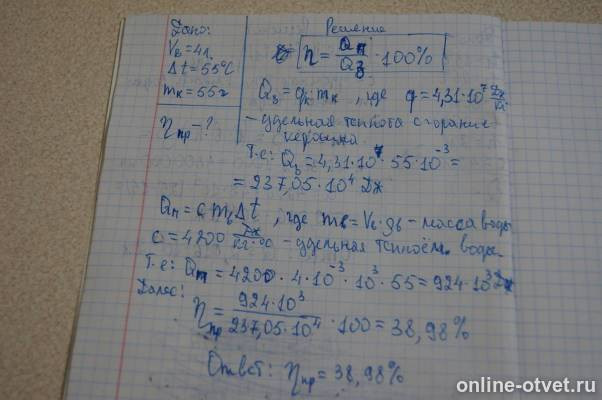 Дано:
Vв = 4л
Δt = 55°C
mк = 55г
ηпр - ?
Решение
η = Qп/Qз · 100%
Qз = q · mк, где q = 4,31·10⁷ Дж/кг
- удельная теплота сгорания
керосина.
Т.е: Qз = 4,31·10⁷ · 55·10⁻³ =
= 237,05·10⁴ Дж
Qп = c mв Δt, где mв = Vв · ρв - масса воды
c = 4200 Дж/кг·°C - удельная теплоём. воды.
Т.е: Qп = 4200 · 4·10⁻³ · 10³ · 55 = 924·10³ Дж
Далее:
ηпр = 924·10³/237,05·10⁴ · 100 = 38,98%
Ответ: ηпр = 38,98%
online-otvet.ru